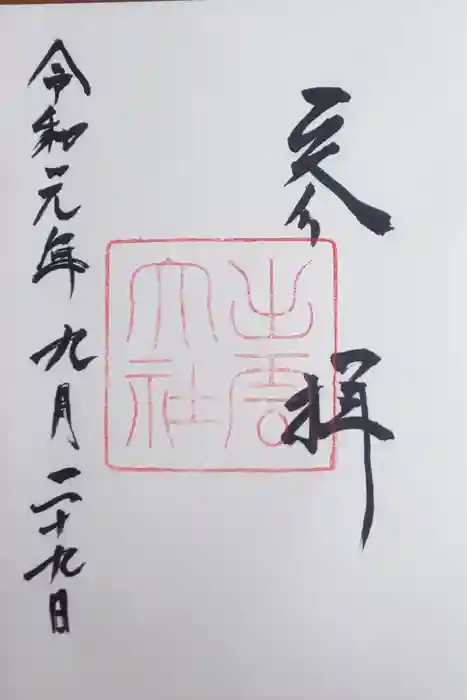 参拝
出雲大社
令和元年九月二十九日